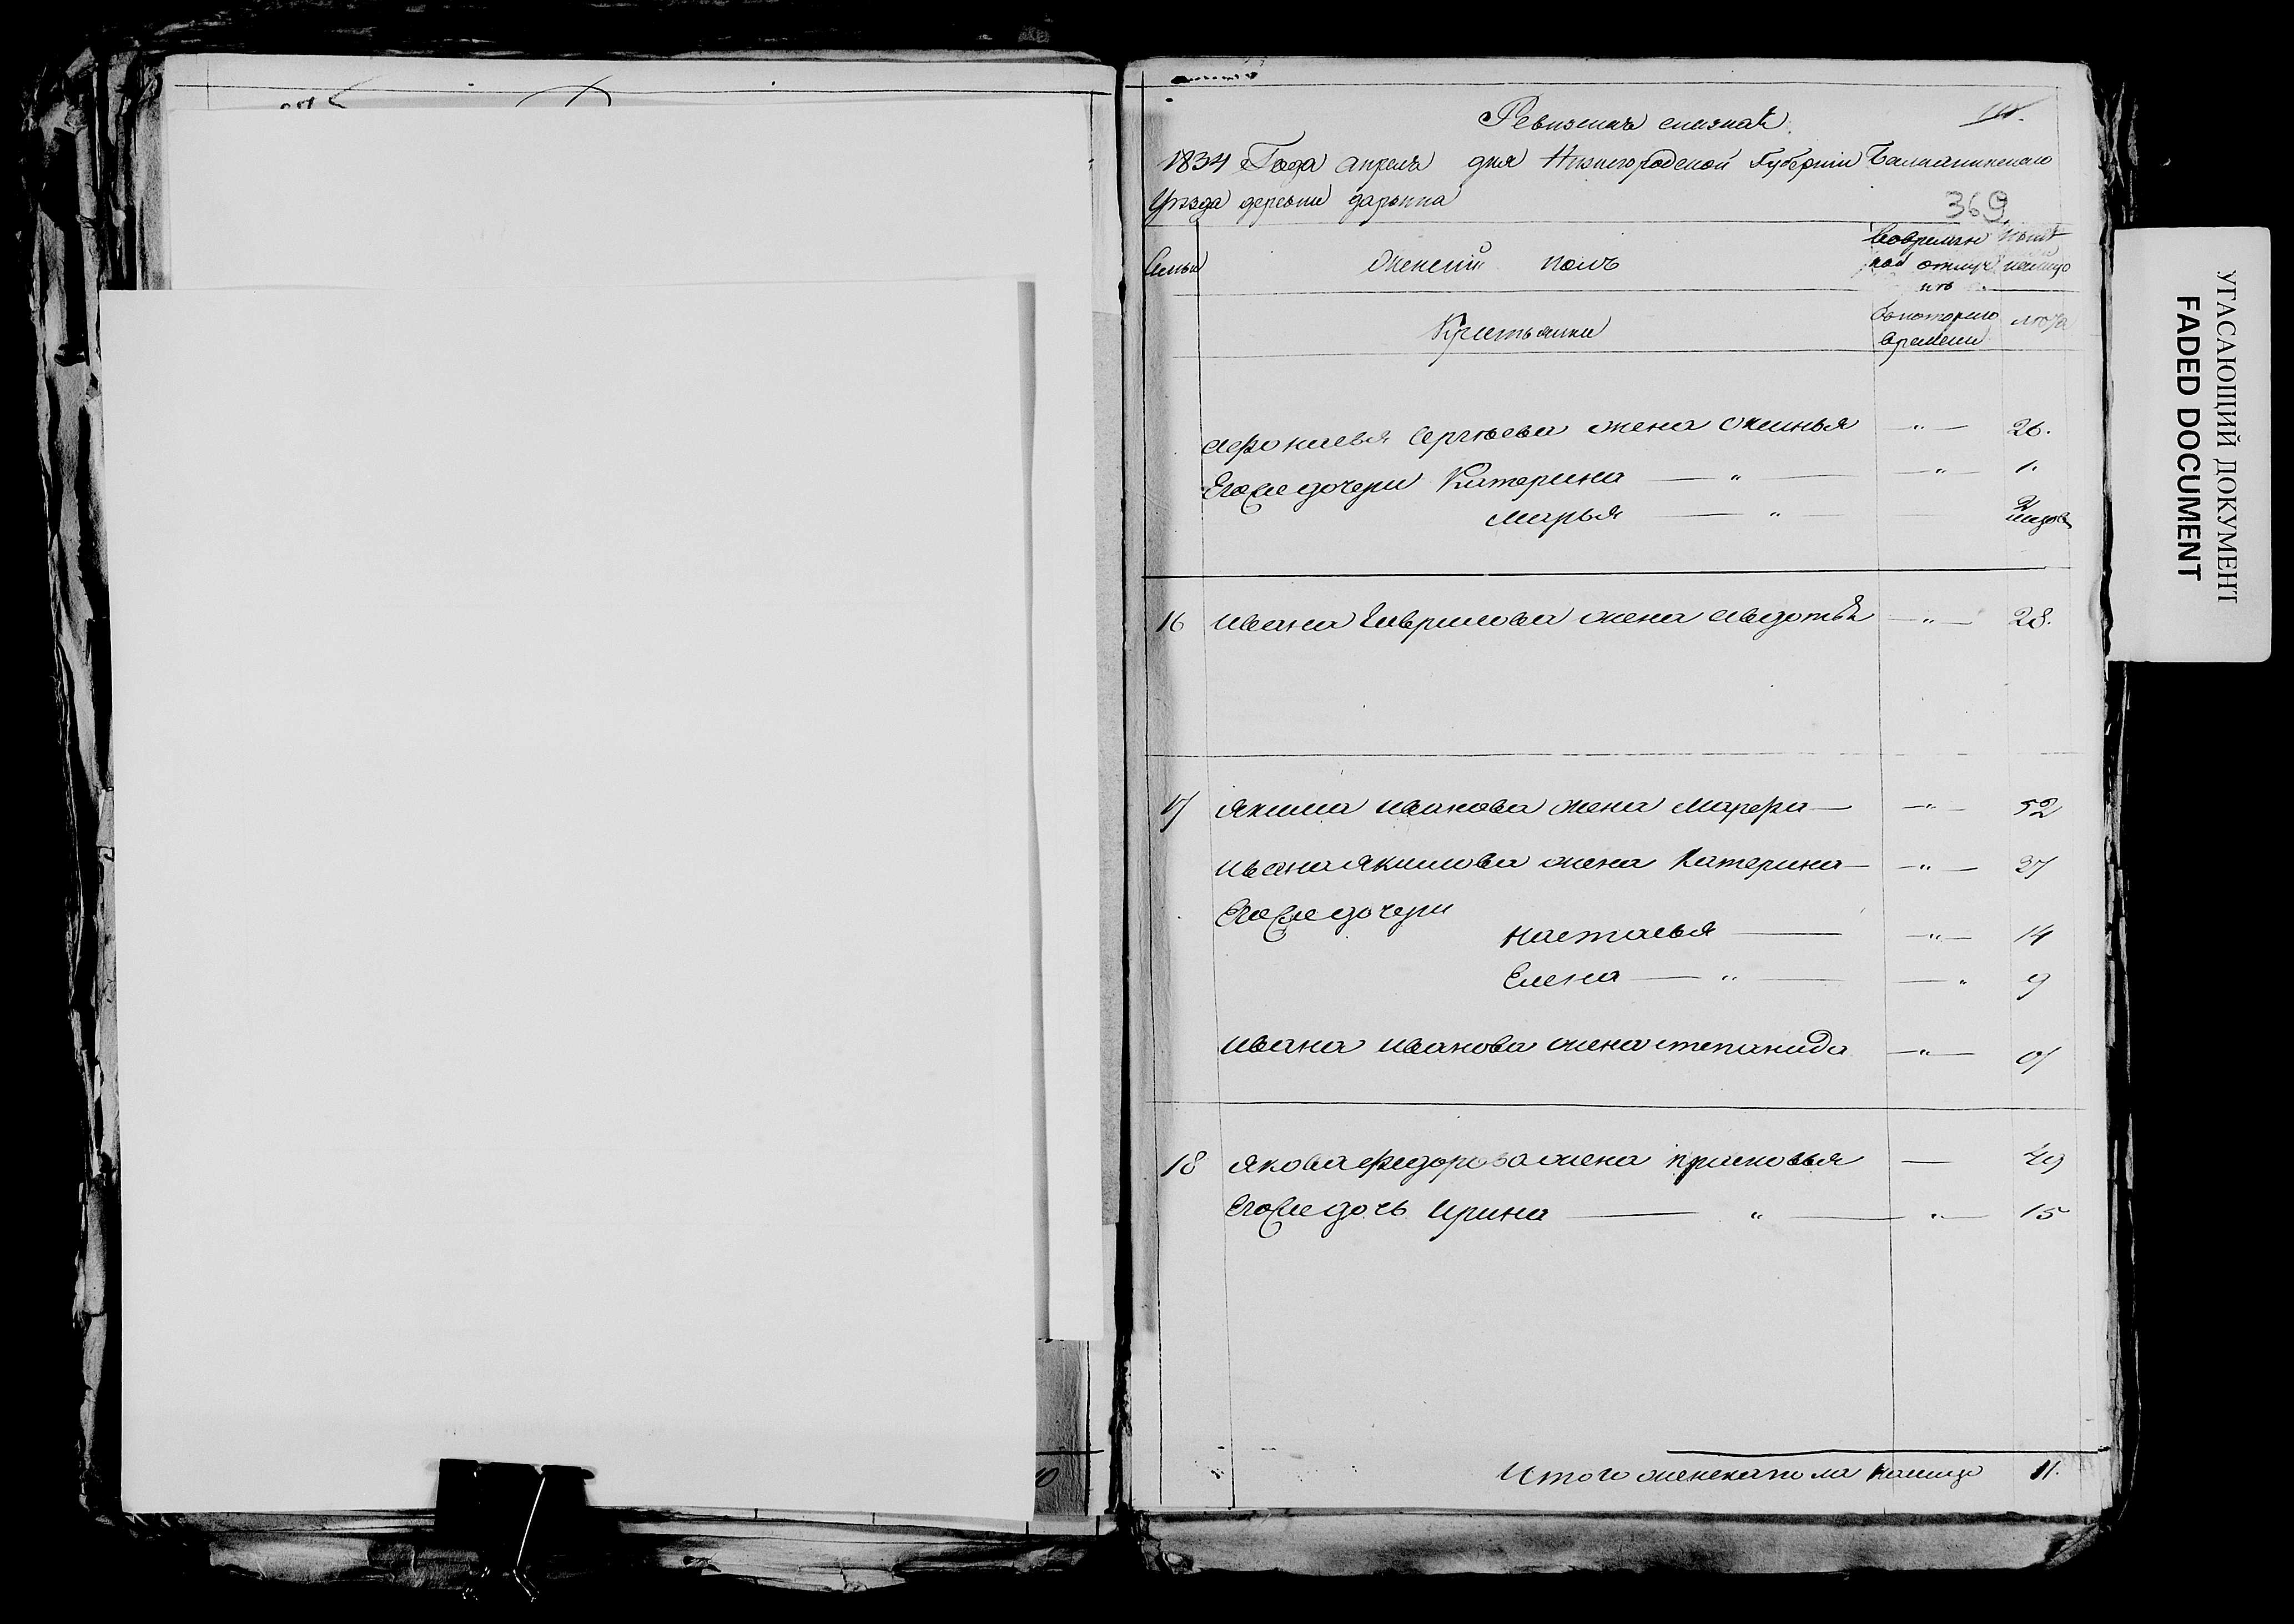 Ревизская сказка
1834 Года апреля дня Нижегородской Губернии Балахнинскаго
Уезда деревни
369
Семьи
Женский полъ
Крестьянки
Во временной отлучке
ныне на лицо
Съ котораго времени
лета
Сергеева жена Аксинья 26.
Его же дочери Катерина 1.
Марья
16 Ивана Гаврилова жена Авдотья 28.
17 Якима Иванова жена Марфа 52
Ивана Якимова жена Катерина 37
Его же дочери
Настасья 14
Елена 9
Ивана Иванова жена степанида
18 Якова Федорова жена прасковья 49
Его же дочь Ирина 15
Итого женска пола налицо 11.
УГАСАЮЩИЙ ДОКУМЕНТ
FADED DOCUMENT